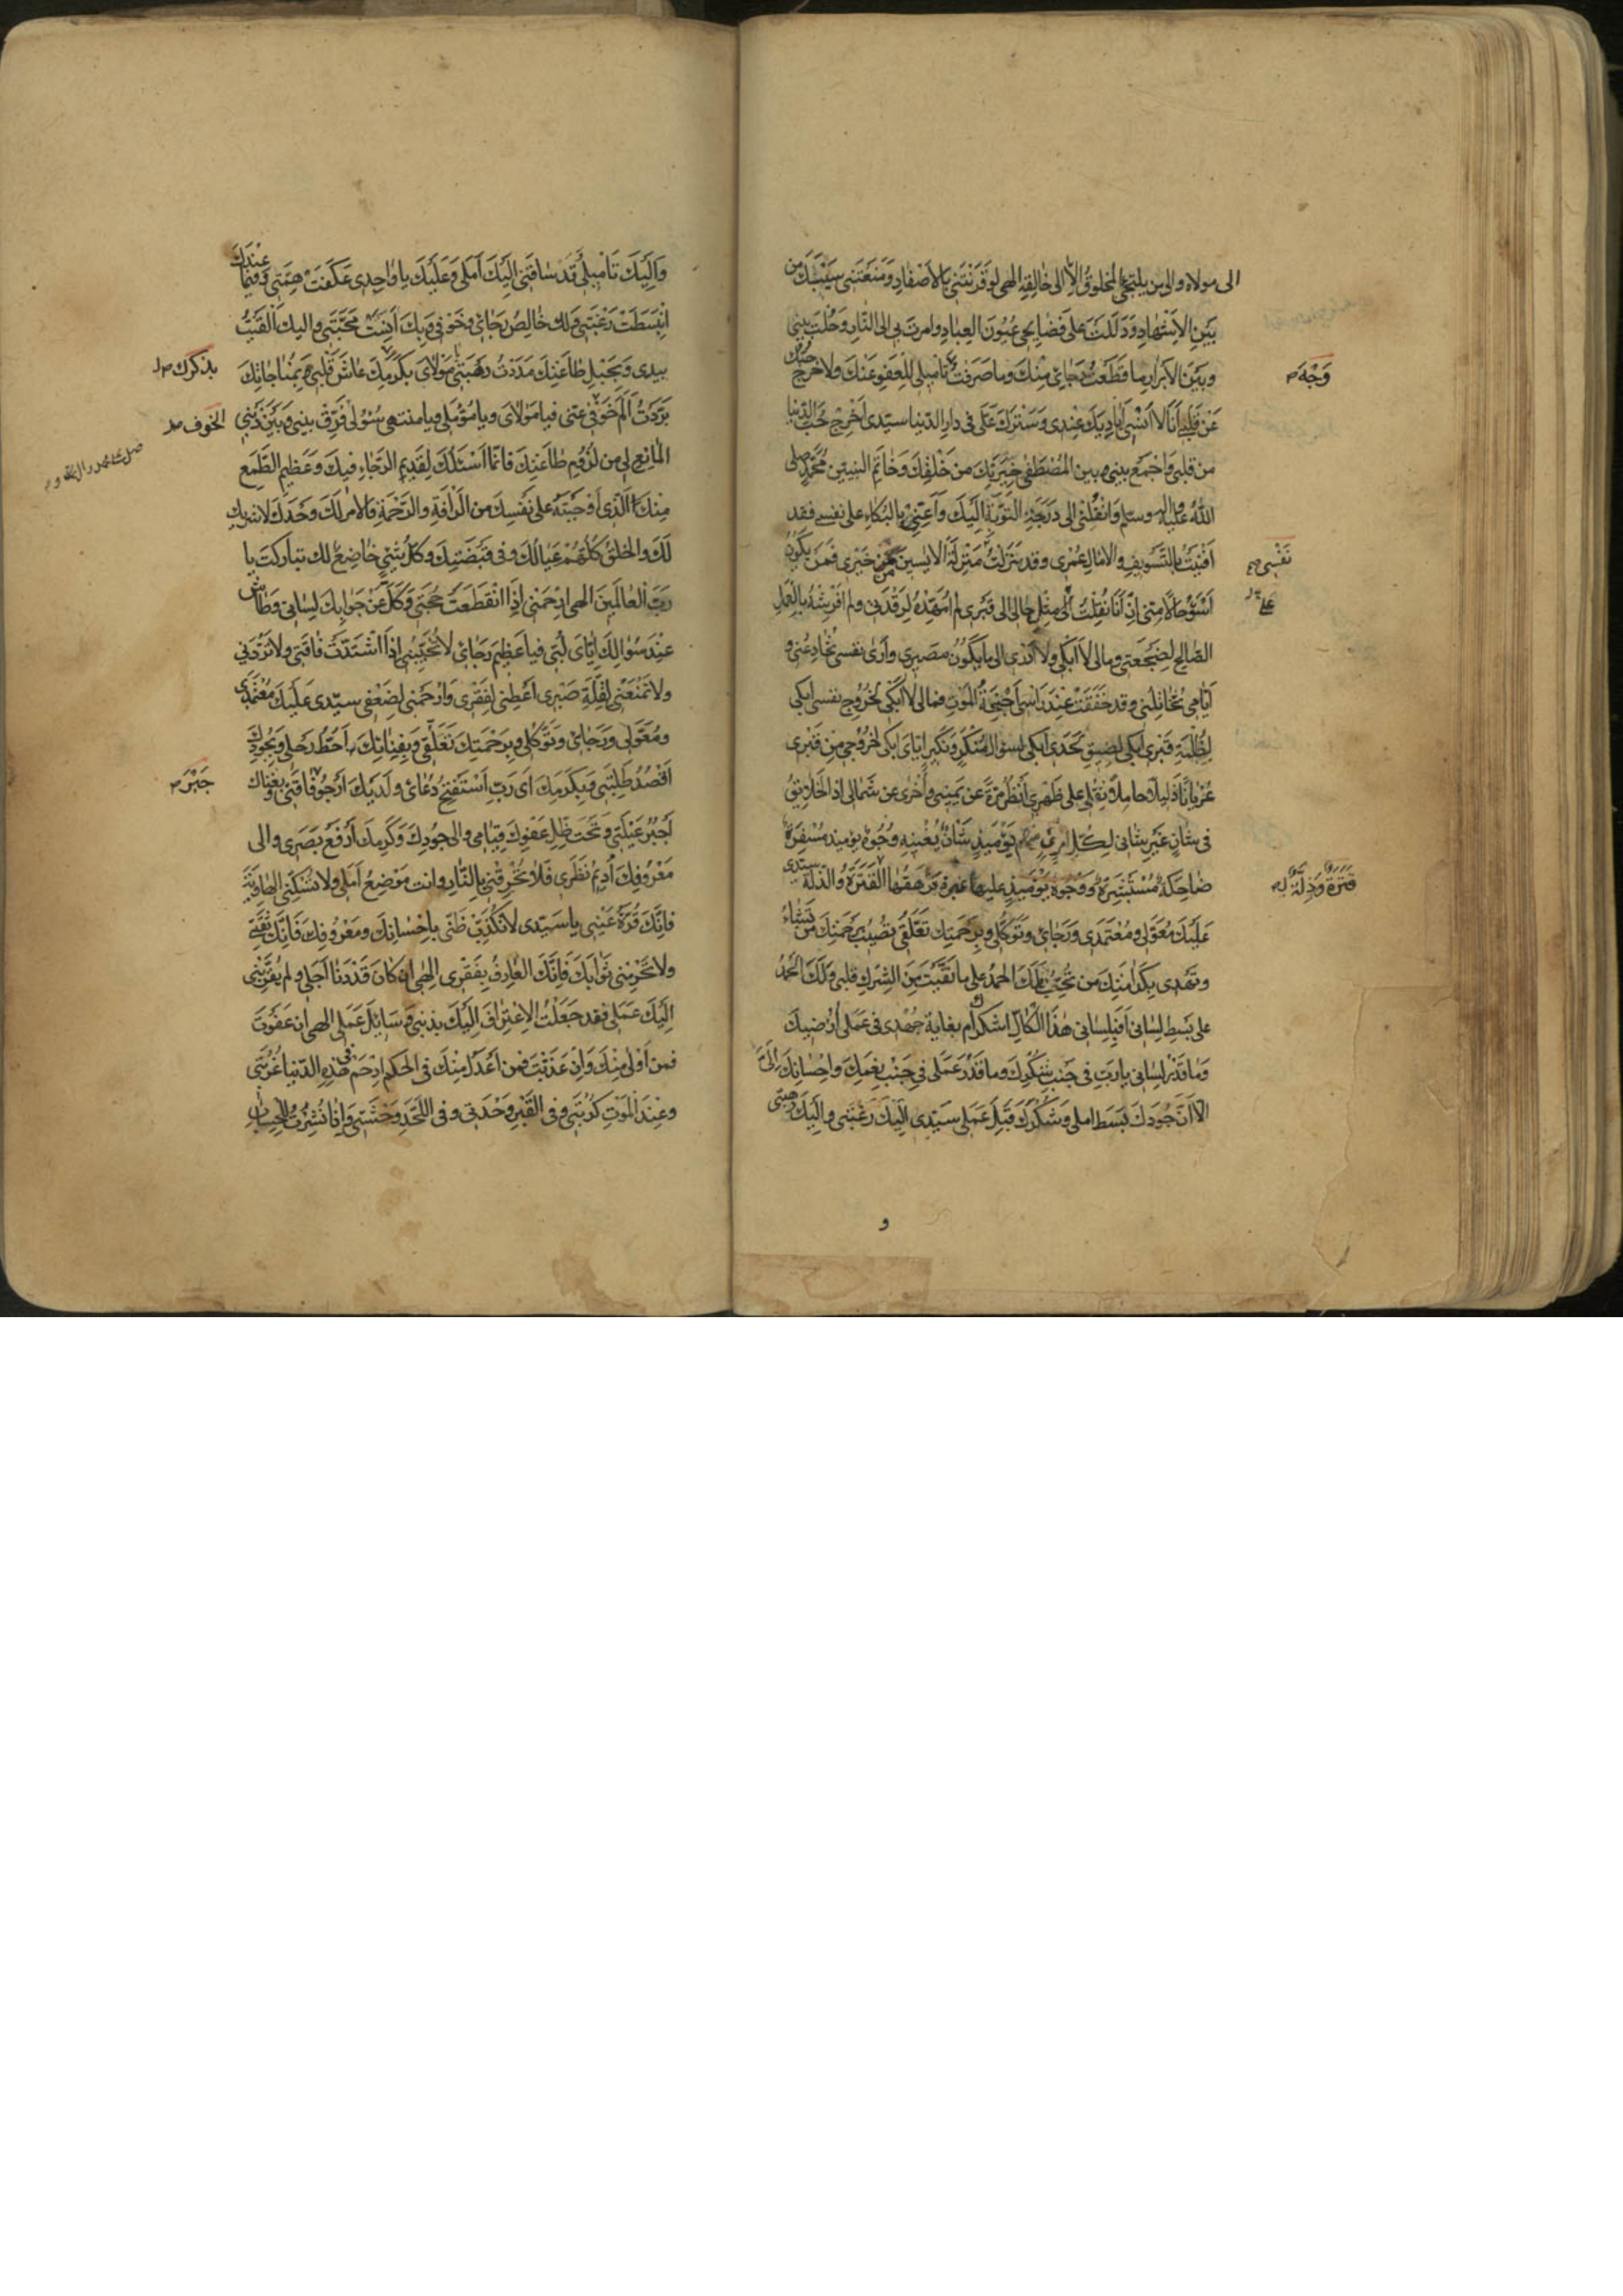 الى مولاه والى من يلتجئ المخلوق الا الى خالقه الهى لو قرنتنى بالاصفاد ومنعتنى سيبك من
بين الاشهاد ودللت على فضايحى عيون العباد وامرت بى الى النار وحلت بينى
وبين الابرار ما قطعت رجائى منك وما صرفت تاميلى للعفو عنك ولا خرج حبك
عن قلبى انا لا انسى اياديك عندى وسترك على فى دار الدنيا سيدى اخرج حب الدنيا
من قلبى واجمع بينى وبين المصطفى خيرتك من خلقك وخاتم النبيين محمد صلى
الله عليه واله وسلم وانقلنى الى درجة التوبة اليك واعنى بالبكاء على نفسى فقد
افنيت بالتسويف والامال عمرى وقد نزلت منزلة الايسين من خيرى فمن يكون
اسوء حالا منى ان انا نقلت الى مثل حالى الى قبرى لم امهده لرقدتى ولم افرشه بالعمل
الصالح لضجعتى ومالى لا ابكى ولا ادرى الى ما يكون مصيرى وارى نفسى تخادعنى و
ايامى تخاتلنى وقد خفقت عند راسى اجنحة الموت فمالى لا ابكى لخروج نفسى ابكى
لظلمة قبرى ابكى لضيق لحدى ابكى لسوال منكر ونكير اياى ابكى لخروجى من قبرى
عريانا ذليلا حاملا ثقلى على ظهرى انظر مرة عن يمينى واخرى عن شمالى اذ الخلايق
فى شان غير شانى لكل امرئ منهم يومئذ شان يغنيه وجوه يومئذ مسفرة
ضاحكة مستبشرة ووجوه يومئذ عليها غبرة ترهقها القترة والذلة سيدى
عليك معولى ومعتمدى ورجائى وتوكلى وبرحمتك تعلقى تصيب برحمتك من تشاء
وتهدى بكرامتك من تحب فلك الحمد على ما نقيت من الشرك قلبى ولك الحمد
على بسط لسانى افبلسانى هذا الكال اشكرك ام بغاية جهدى فى عملى ارضيك
وما قدر لسانى يا رب فى جنب شكرك وما قدر عملى فى جنب نعمك واحسانك الى
الا ان جودك بسط املى وشكرك قبل عملى سيدى اليك رغبتى واليك رهبتى
وجه
نفسى
على
قترة وذلة
و
واليك تاميلى قد ساقنى اليك املى وعليك يا واحدى عكفت همتى وفيما عندك
انبسطت رغبتى ولك خالص رجائى وخوفى وبك انست محبتى واليك القيت
بيدى وبحبل طاعتك مددت رهبتى مولاى بكرمك عاش قلبى وبمناجاتك
بردت الم خوفى عنى فيا مولاى ويا مؤملى ويا منتهى سؤلى فرق بينى وبين ذنبى
المانع لى من لزوم طاعتك فانما اسئلك لقديم الرجاء فيك وعظيم الطمع
منك الذى اوجبته على نفسك من الرافة والرحمة فالامر لك وحدك لا شريك
لك والخلق كلهم عيالك وفى قبضتك وكل شئ خاضع لك تباركت يا
رب العالمين الهى ارحمنى اذا انقطعت حجتى وكل عن جوابك لسانى وطاش
عند سؤالك اياى لبى فيا عظيم رجائى لا تخيبنى اذا اشتدت فاقتى ولا تردنى
ولا تمنعنى لقلة صبرى اعطنى لفقرى وارحمنى لضعفى سيدى عليك معتمدى
ومعولى ورجائى وتوكلى وبرحمتك تعلقى وبفنائك احط رحلى وبجودك
اقصد طلبتى وبكرمك اى رب استفتح دعائى ولديك ارجو فاقتى وبغناك
اجبر عيلتى وتحت ظل عفوك قيامى والى جودك وكرمك ارفع بصرى والى
معروفك اديم نظرى فلا تحرقنى بالنار وانت موضع املى ولا تسكنى الهاوية
فانك قرة عينى يا سيدى لا تكذب ظنى باحسانك ومعروفك فانك ثقتى
ولا تحرمنى ثوابك فانك العارف بفقرى الهى ان كان قد دنا اجلى ولم يقربنى
اليك عملى فقد جعلت الاعتراف اليك بذنبى وسايل عملى الهى ان عفوت
فمن اولى منك وان عذبت فمن اعدل منك فى الحكم ارحم فى هذه الدنيا غربتى
وعند الموت كربتى وفى القبر وحدتى وفى اللحد وحشتى واذا نشرت للحساب
بذكرك
الخوف
جبر